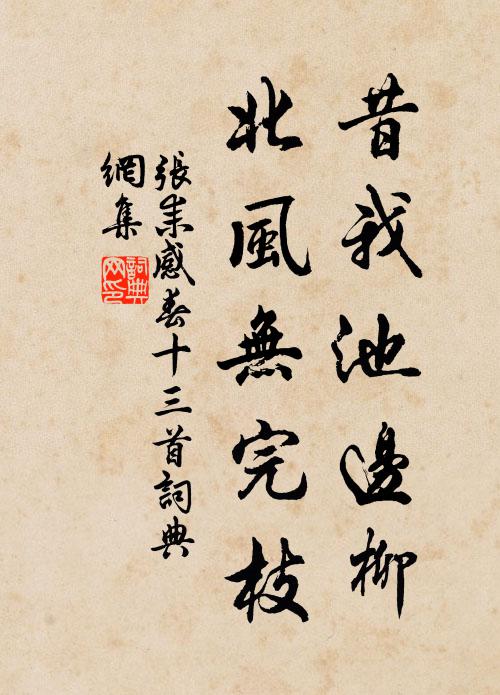 昔我池邊柳
北風無完枝
張耒感春十三首詞典
網集
詞典
網印